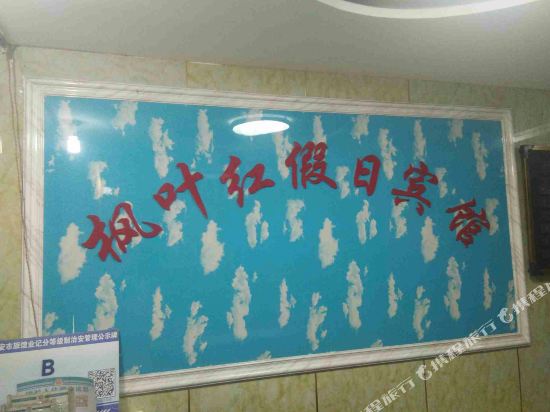 枫叶红假日宾馆
安市旅馆业记分等级制治安管理公示牌
B
携程旅行